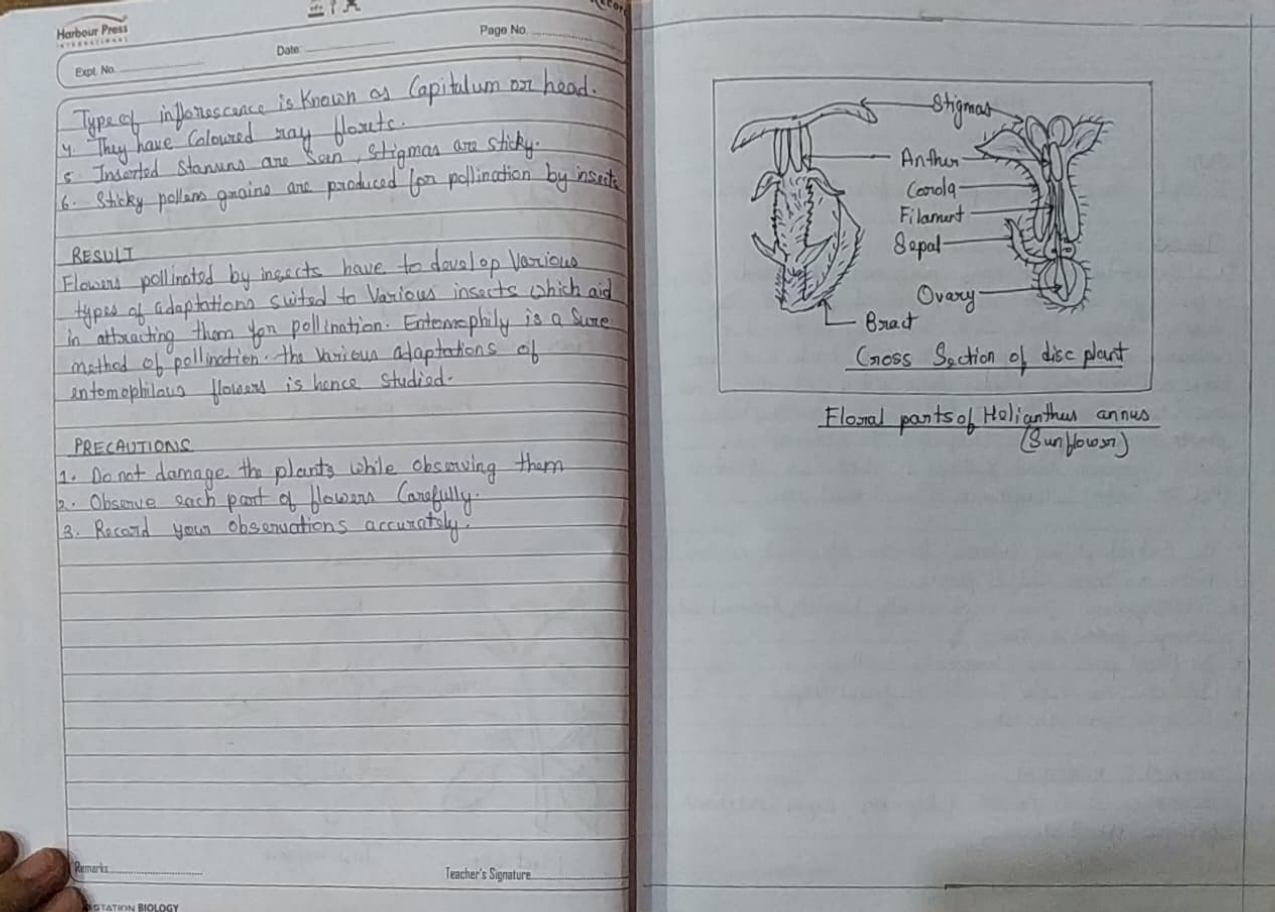 Harbour Press
INTERNATIONAL
Expt. No.
Date
Page No.
Type of inflorescence is Known as Capitulum or head.
4. They have Coloured ray florets.
5. Inserted Stamens are Seen, Stigmas are sticky.
6. Sticky pollens grains are produced for pollination by insects
RESULT
Flowers pollinated by insects have to develop Various
types of adaptations suited to Various insects which aid
in attracting them for pollination. Entomophily is a Sure
method of pollination. the Various adaptations of
entomophilous flowers is hence studied.
PRECAUTIONS
1. Do not damage the plants while observing them
2. Observe each part of flowers Carefully.
3. Record your observations accurately.
Remarks
Teacher's Signature
STATION BIOLOGY
Stigmas
Anther
Corola
Filament
Sepal
Ovary
Bract
Cross Section of disc plant
Floral parts of Helianthus annus
(Sunflower)